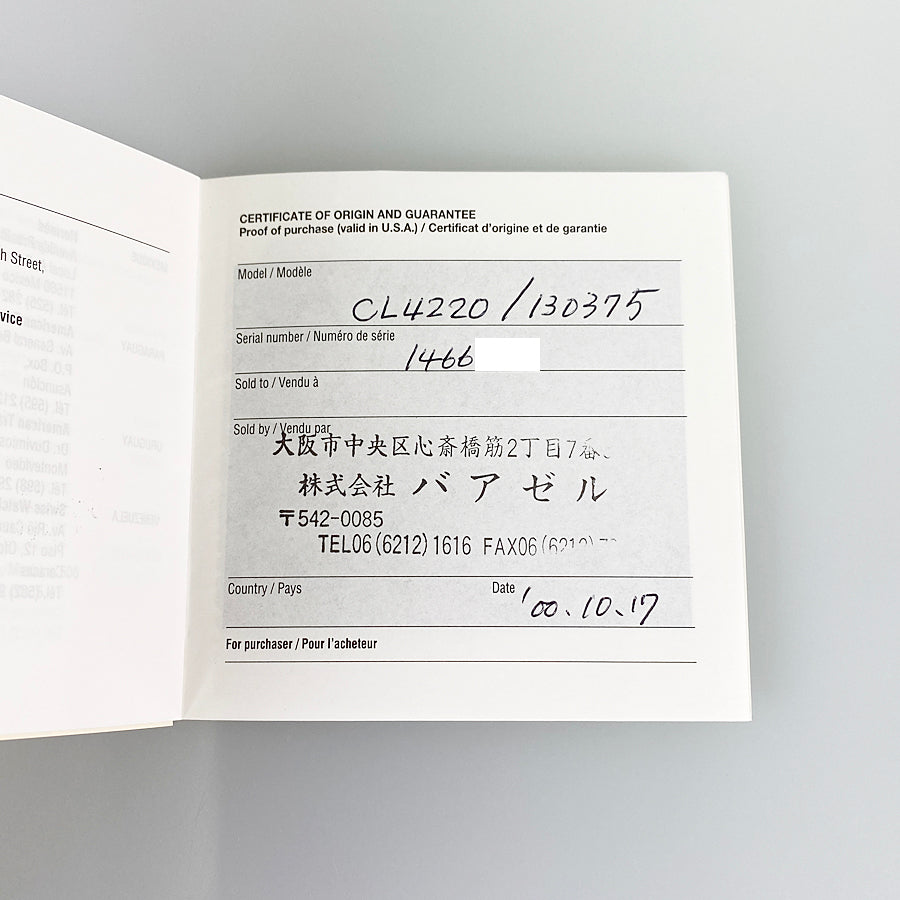 h Street,
vice
CERTIFICATE OF ORIGIN AND GUARANTEE
Proof of purchase (valid in U.S.A.) / Certificat d'origine et de garantie
Model / Modèle
CL4220 / 130375
Serial number / Numéro de série
1466
Sold to / Vendu à
Sold by / Vendu par
大阪市中央区心斎橋筋2丁目7番
株式会社 バアゼル
〒542-0085
TEL06(6212)1616 FAX06(6212)
Country / Pays
Date '00.10.17
For purchaser / Pour l'acheteur